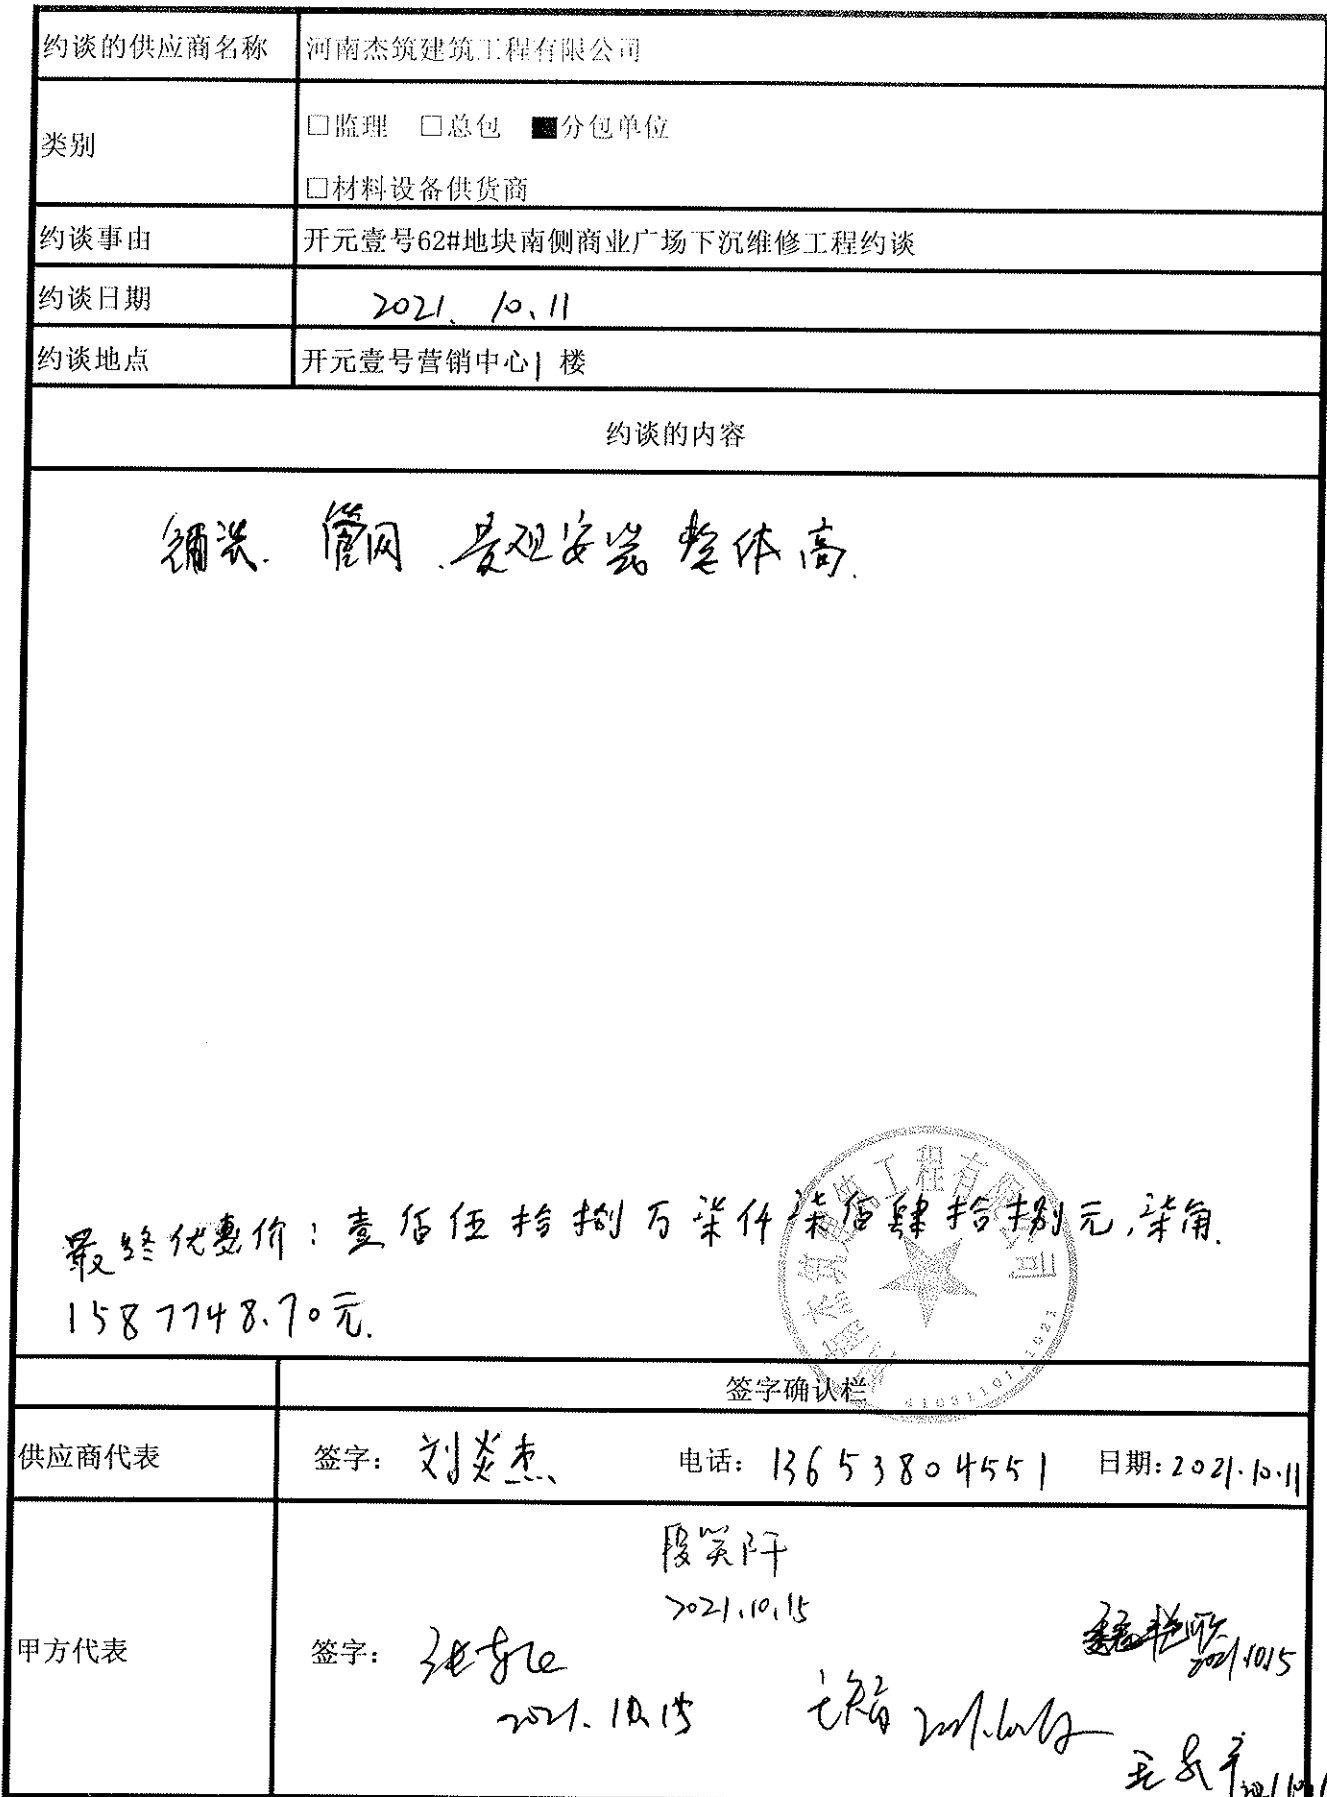 约谈的供应商名称 河南杰筑建筑工程有限公司
类别 □监理 □总包 ■分包单位
□材料设备供货商
约谈事由 开元壹号62#地块南侧商业广场下沉维修工程约谈
约谈日期 2021. 10.11
约谈地点 开元壹号营销中心1 楼
约谈的内容
铺装. 管网.景观安装 整体高.
最终优惠价:壹佰伍拾捌万柒仟柒佰肆拾捌元,柒角.
1587748.70元.
签字确认栏
供应商代表 签字: 刘炎杰 电话: 13653804551 日期:2021.10.11
段笑阡
2021.10.15
甲方代表 签字:
2021.10.15
2021.10.15